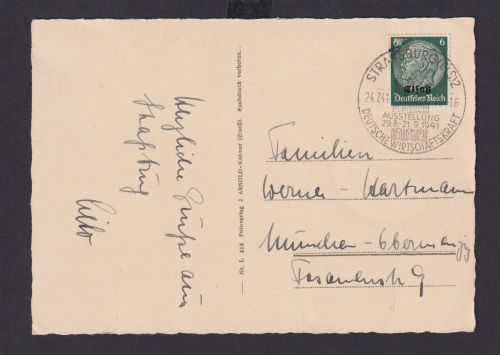 Herzliche Grüße aus
Straßburg
Nr. L 218 Fotoverlag J. ARNOLD-Kolmar (Elsaß). Nachdruck verboten.
6 6
Elsaß
Deutsches Reich
STRASSBURG (ELS) 2
24.7.41
16
AUSSTELLUNG
29.8.-21.9.1941
DEUTSCHE WIRTSCHAFTSKRAFT
Familien
Werner - Hartmann
München - Obermenzing
Fasanenstr. 9